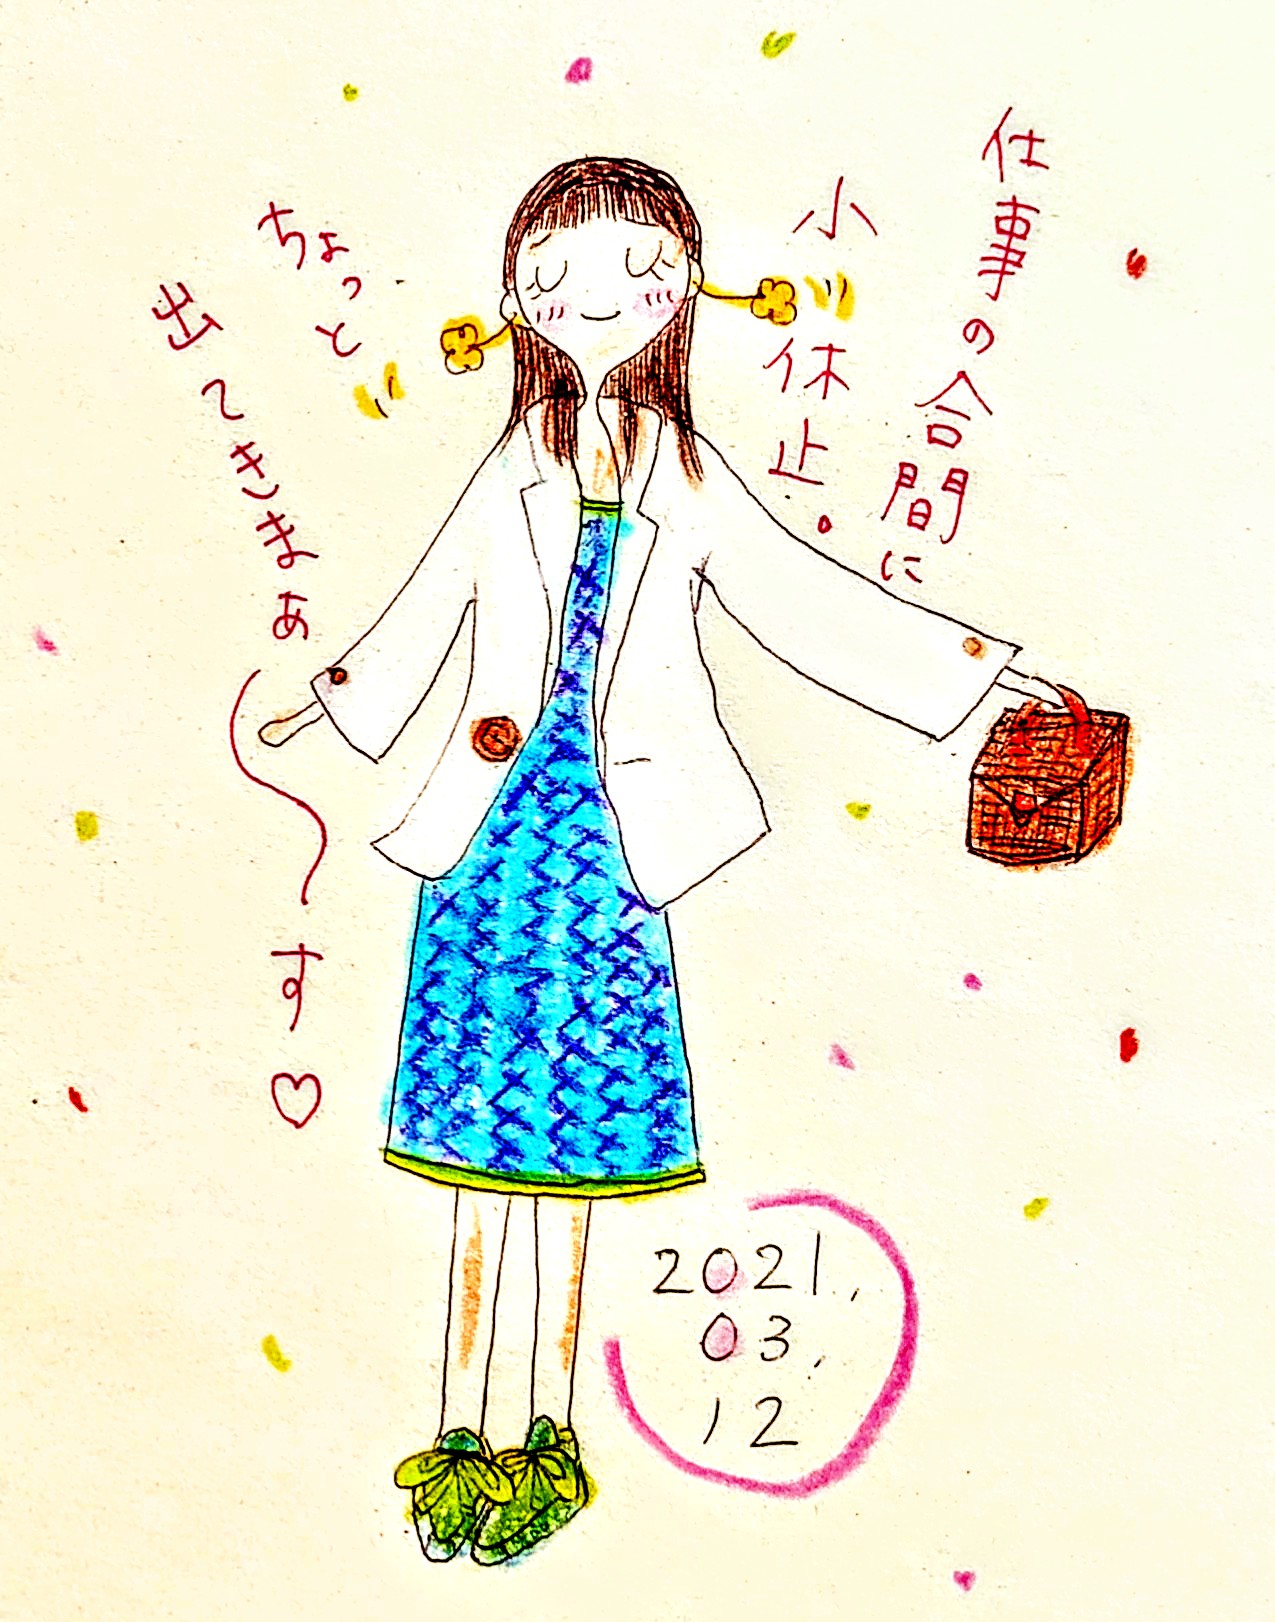 仕事の合間に
小休止。
ちょっと
出てきまぁ〜す♡
2021.
03.
12